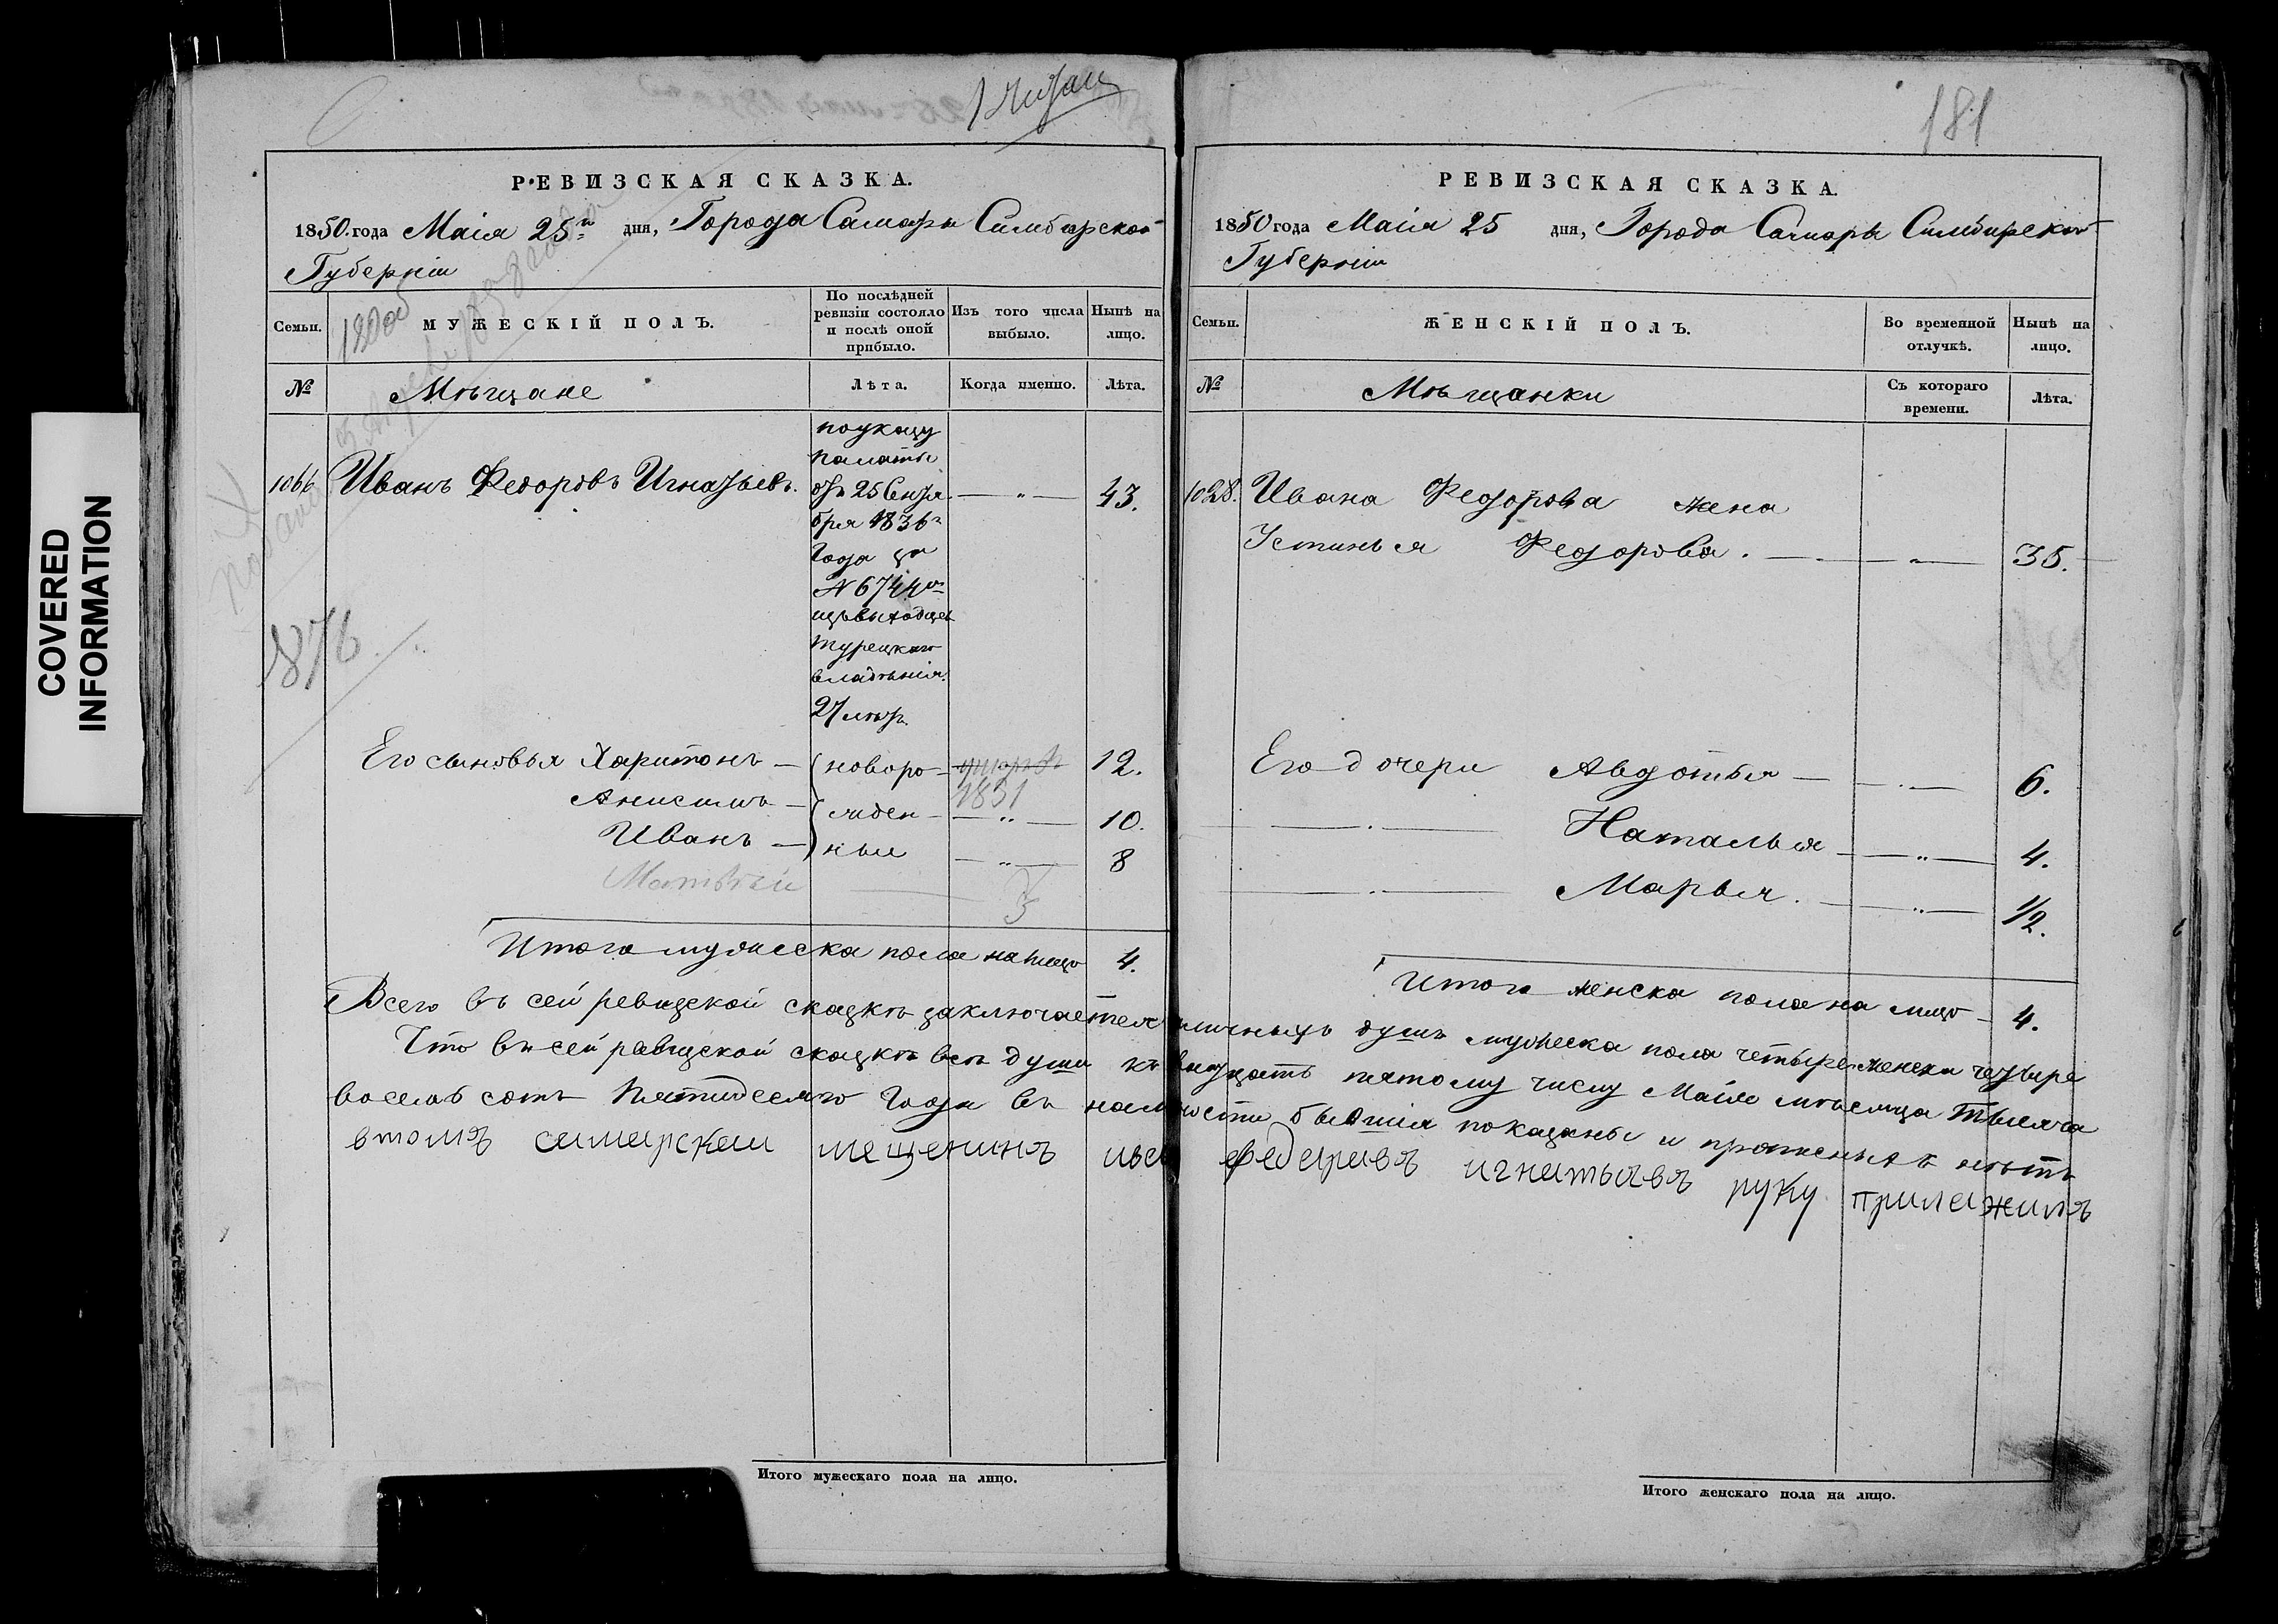 COVERED
INFORMATION
РЕВИЗСКАЯ СКАЗКА.
1850. года Маія 25го дня, Города Самары Симбирской
Губерніи
Семьи.
МУЖЕСКІЙ ПОЛЪ.
По послѣдней
ревизіи состояло
и послѣ оной
прибыло.
Изъ того числа
выбыло.
Нынѣ на
лицо.
№
Мѣщане
Лѣта.
Когда именно.
Лѣта.
1066 Иванъ Федоровъ Игнатьевъ.
по указу
палаты
отъ 25 Сентя
бря 1836го
года за
№ 6744м
изъ выходцев
турецкаго
владѣнія.
27 лѣтъ.
— „ —
43.
1876.
Его сыновья Харитонъ —
новоро-
1851
12.
Анисимъ —
жден-
— „ —
10.
Иванъ —
ныи
— „ —
8
Матвѣй
3
Итого мужеска пола на лицо 4.
181
РЕВИЗСКАЯ СКАЗКА.
1850 года Маія 25 дня, Города Самары Симбирской
Губерніи
Семьи.
ЖЕНСКІЙ ПОЛЪ.
Во временной
отлучкѣ.
Нынѣ на
лицо.
№
Мѣщанки
Съ котораго
времени.
Лѣта.
1028. Ивана Федорова жена
Устинья Федорова. — „ — 35.
Его дочери Авдотья — — „ — 6.
— „ — Наталья — — „ — 4.
— „ — Марья. — „ — 1/2.
Итого женска пола на лицо — 4.
Всего въ сей ревизской сказкѣ заключается личныхъ душъ мужеска пола четыре женска четыре
Что въ сей ревизской сказкѣ всѣ души къ двадцать пятому числу Маія мѣсяца тысяча
восемь сотъ пятидесято года въ наличности бывшія показаны и прописныхъ нѣтъ
втомъ самарскаи мещенинъ иван федаравъ игнатьевъ руку прилажилъ
Итого мужескаго пола на лицо.
Итого женскаго пола на лицо.